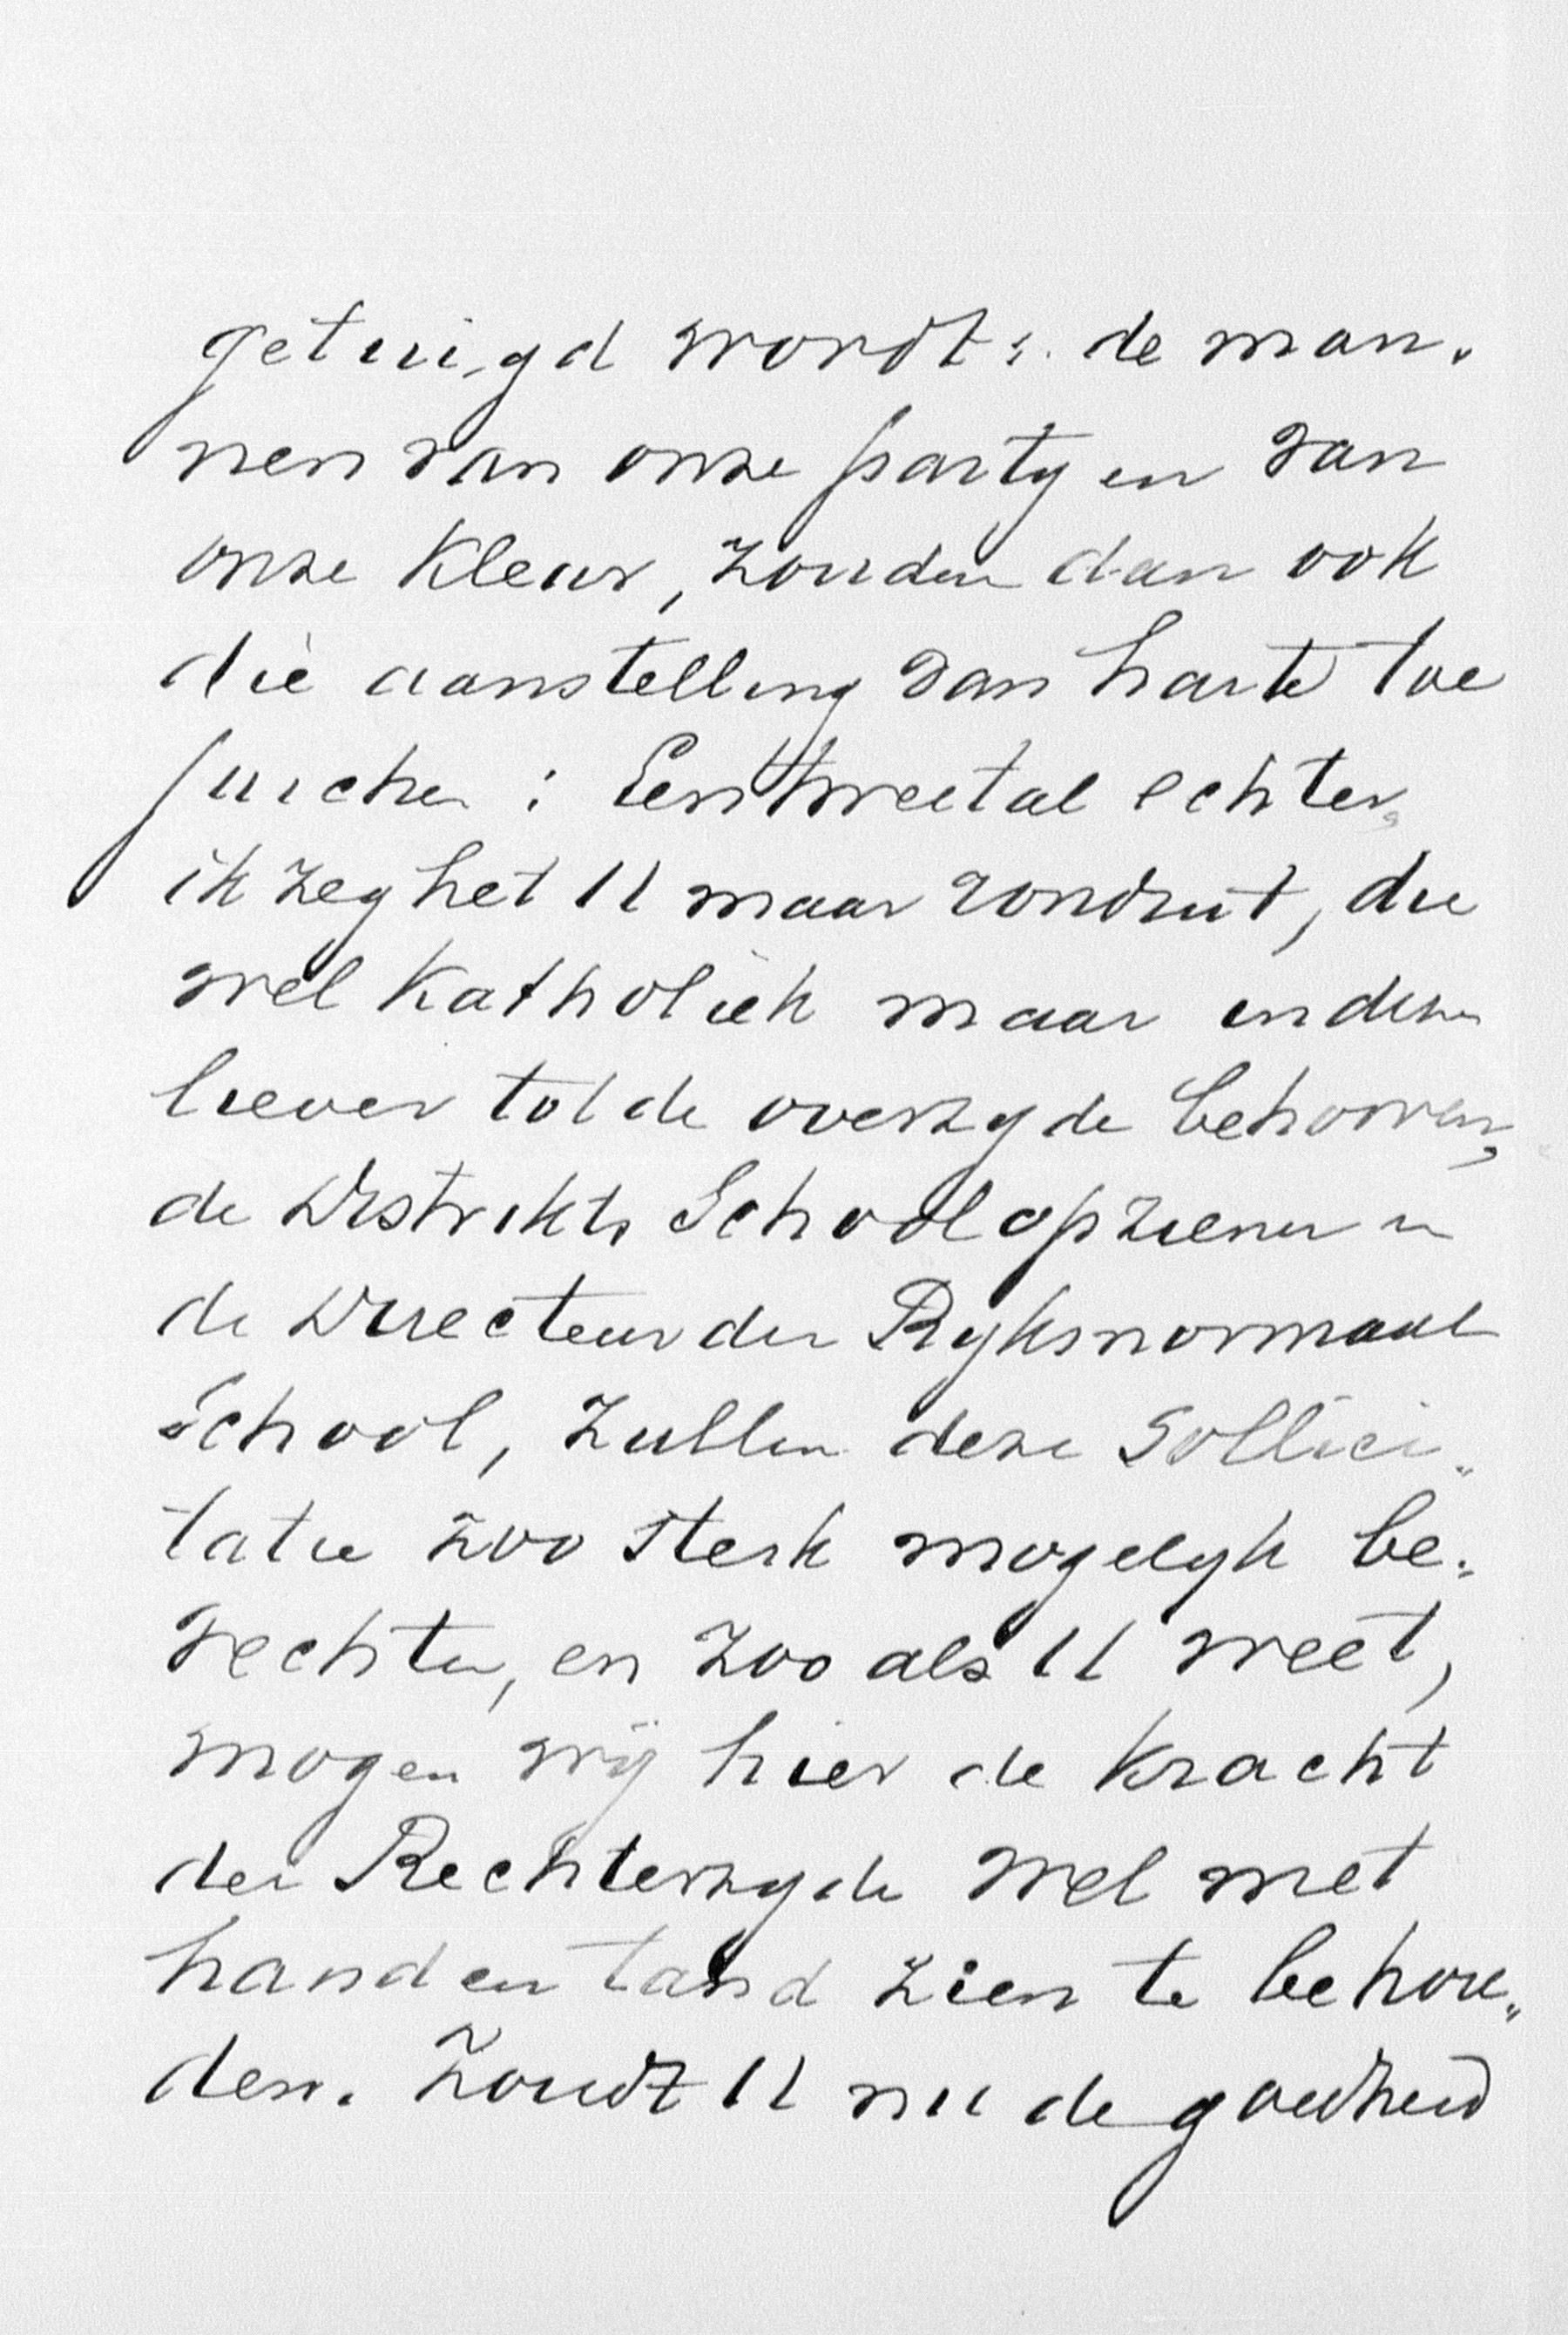 getuigd wordt: de man-
nen van onze party en van
onze kleur, zouden dan ook
die aanstelling van harte toe
juichen: Een tweetal echter,
ik zeg het U maar rondruit, die
wel Katholiek maar indien
liever tot de overzyde behooren,
de Distrikts Schoolopziener en
de Directeur der Ryksnormaal
School, zullen deze Sollici-
tatie zoo sterk mogelyk be-
vechten, en zoo als U weet,
mogen wij hier de kracht
der Rechterzyde wel met
hand en tand zien te behou-
den. Zoudt U nu de goedheid